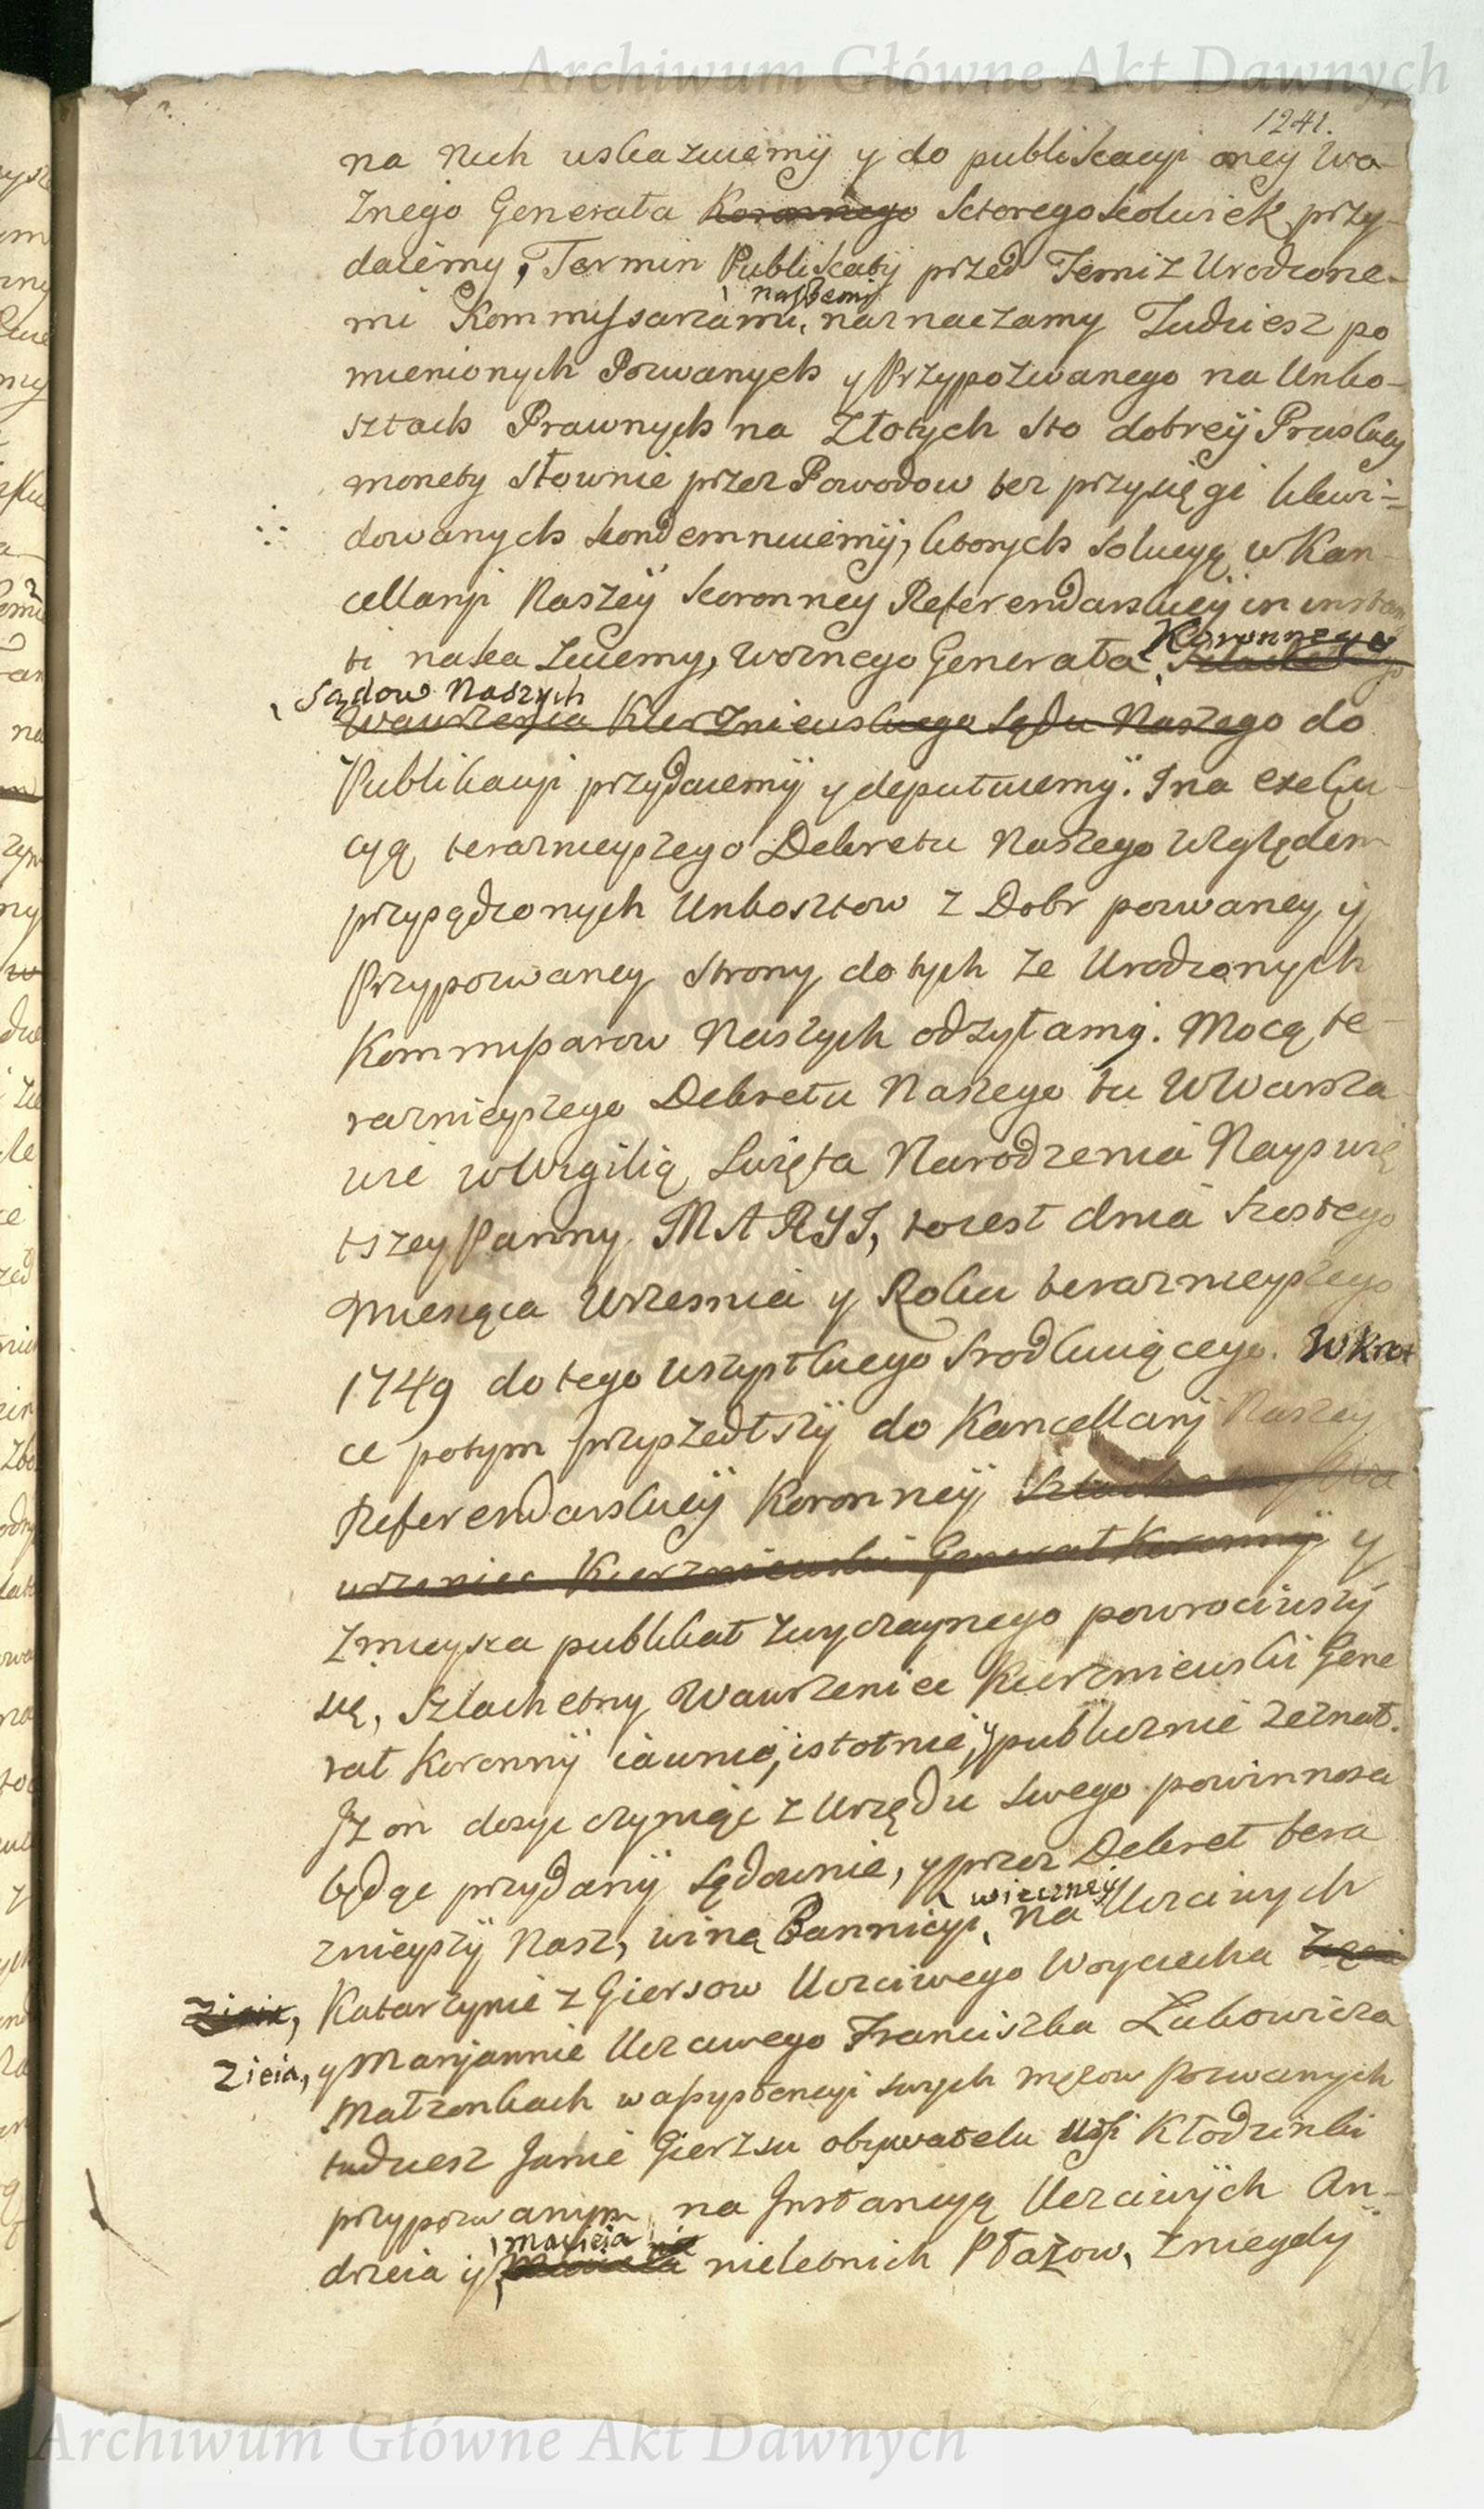 Archiwum Główne Akt Dawnych
1241.
na Nich uskazuiemÿ y do publikacyi oney Wo-
znego Generała Koronnego ktoregokolwiek przy-
daiemy, Termin Publikaty przed Temiz Urodzone-
naszemi
mi Kommyssarzami, naznaczamy Tudziesz po
mienionych Pozwanych y Przypozwanego na Unko-
sztach Prawnych na Złotych sto dobrey Pruskiey
monety słownie przez Powodow bez przysięgi likwi=
dowanych kondemnuiemÿ, ktorych solucyą w Kan-
cellaryi Naszeÿ koronney Referendarskieÿ in instan
Koronnego
ti nakazuiemy, Woznego Generała
Sądow Naszych
Wawrzenca Kierzniewskiego Sądu Naszego do
Publikacyi przydaiemÿ y deputuiemÿ. I na exeku-
cyą teraznieyszego Dekretu Naszego Względem
przysądzonych Unkosztow z Dobr pozwaney ÿ
Przypozwaney strony do tych ze Urodzonych
Kommissarow Naszych odzyłamy. Mocą te-
raznieyszego Dekretu Naszego tu W Warsza
wie w Wigilią Swięta Narodzenia Nayswię
tszey Panny MARYI, to iest dnia szostego
Miesiąca Wrzesnia y Roku teraznieyszego
1749 do tego wszystkiego srodkuiącego. W krot
ce potym przyszedłszÿ do Kancellaryi Naszey
Referendarskieÿ Koronneÿ Szlachetny Wa
wrzeniec Kierzniewski Generał Koronnÿ y
z mieysca publikat zwyczaynego powrociwszÿ
się, Szlachetny Wawrzeniec Kierzniewski Gene
rał Koronnÿ iawnie, istotnie, y publicznie zeznał.
Iz on dosyc czyniąc z Urzędu swego powinnosci
będąc przydanÿ Sądownie, y przez Dekret tera
wieczneÿ
znieyszÿ Nasz, winę Bannicyi, na Uczciwych
Katarzynie z Giersow Uczciwego Woyciecha Zięcia
Zieia,
Zieia, y Maryannie Uczciwego Franciszka Łukowicza
Małzonkach w assystencyi swych męzow Pozwanych
tudziesz Janie Gierzsu obywatelu Wsi Kłodzinki
przypozwanym na Instancyą Uczciwÿch An-
Macieia
drzeia ÿ nieletnich Ptazow, z niegdy
Archiwum Główne Akt Dawnych